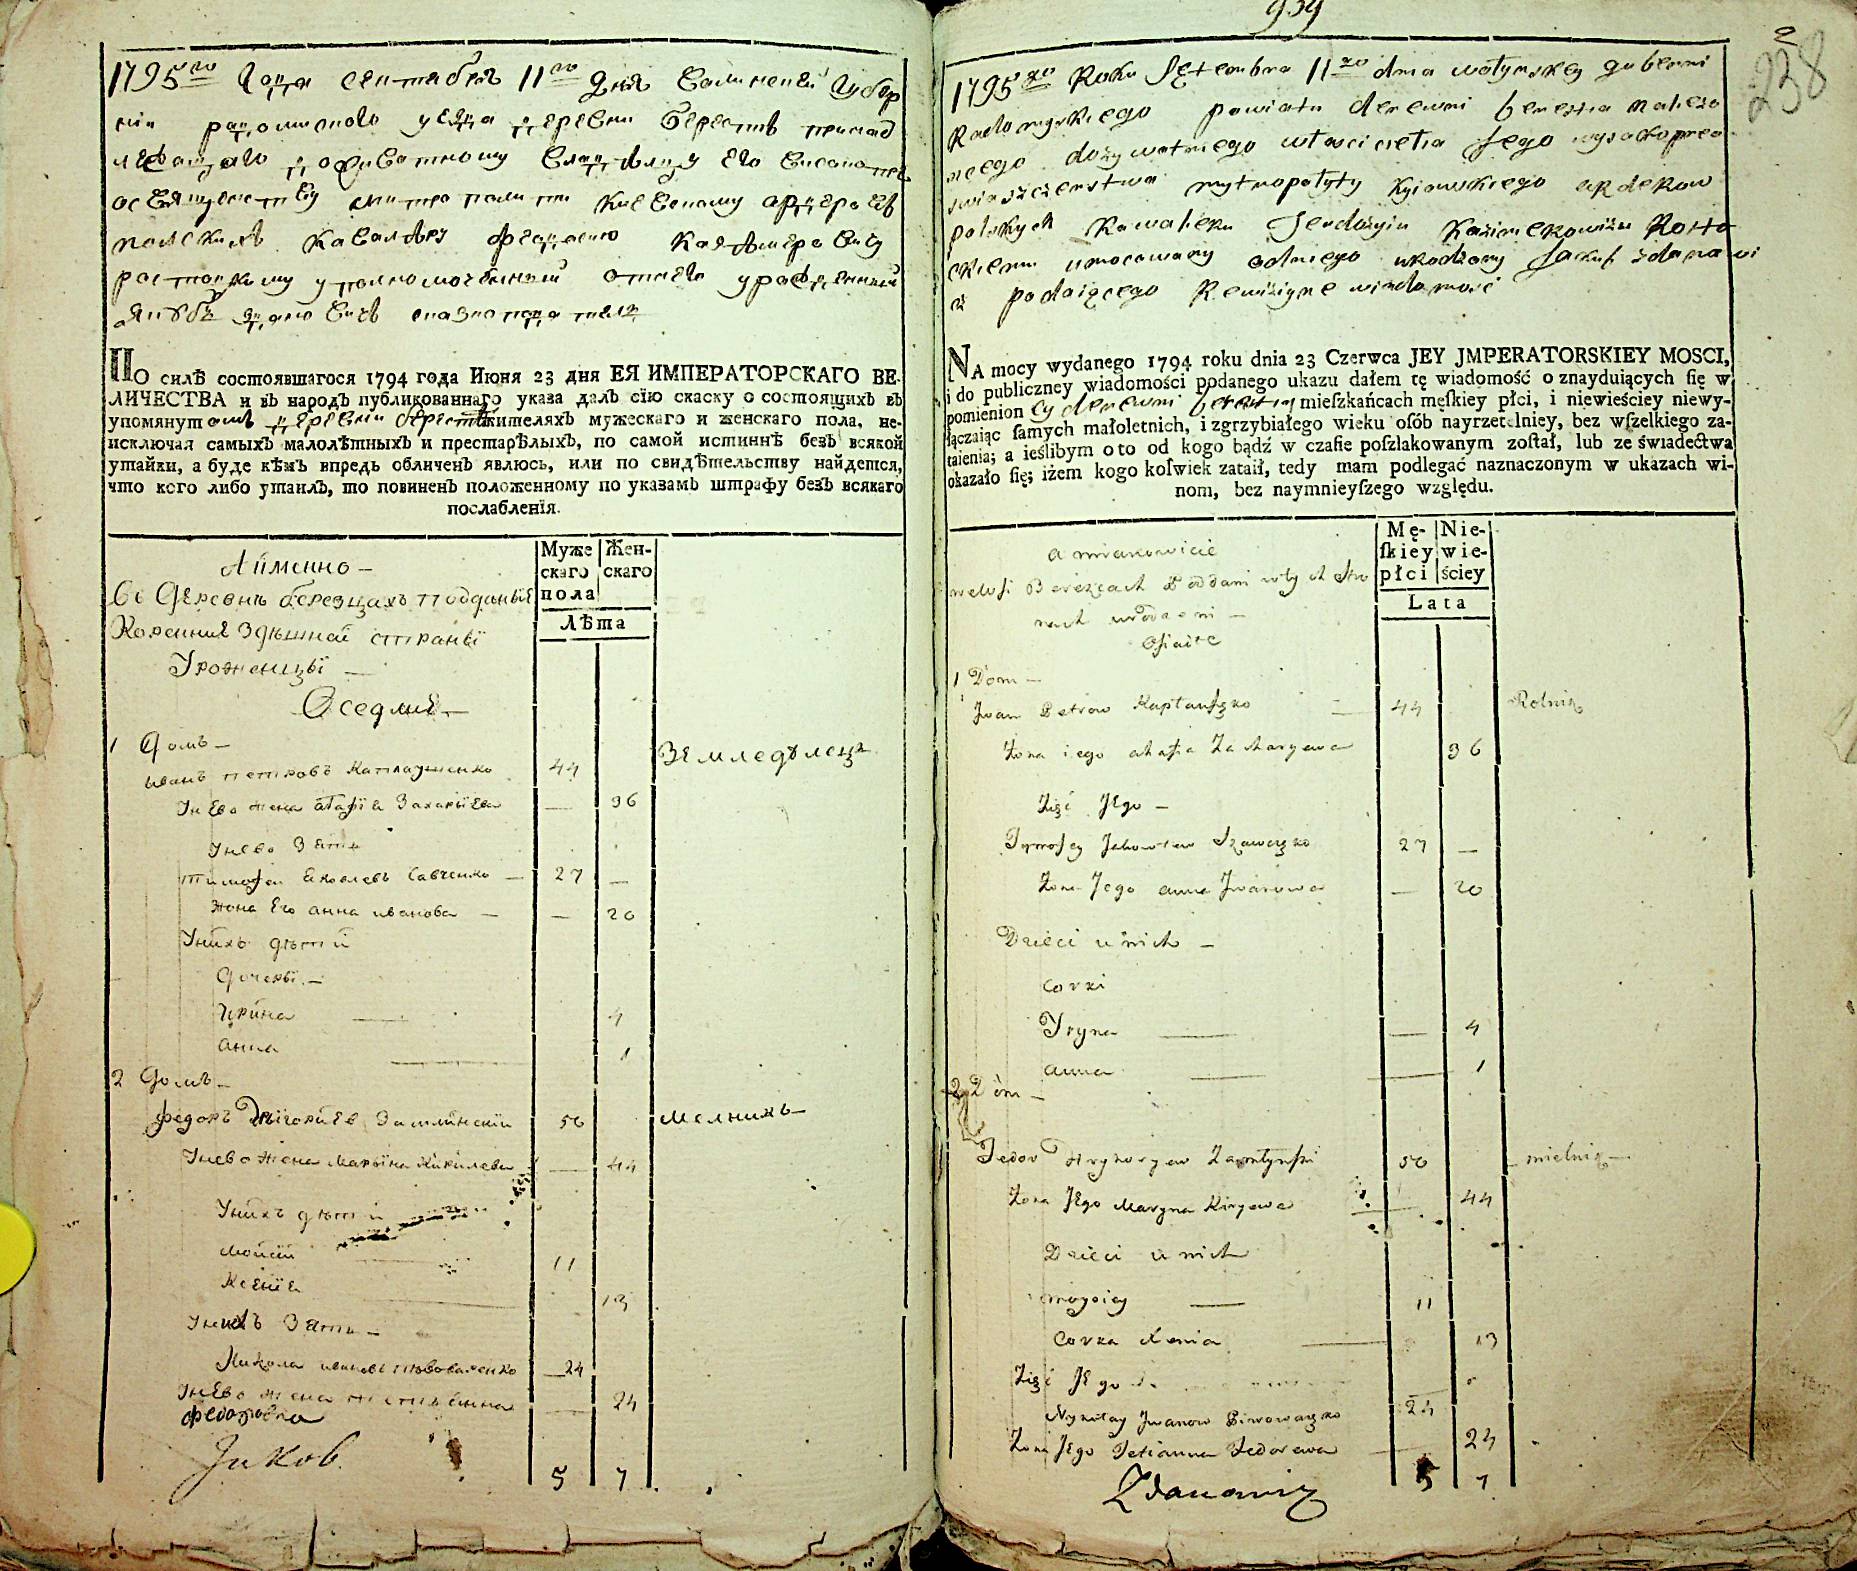 939
2
238
1795го Года сентября 11го дня Волынской Губер
нїи радомыского уезда деревни берестѣ принад
лежащаго доживотному владѣлцу Его высокопре
освященству митрополиту киевскому ордеровъ
полскихъ кавалѣру феодосию казѣмеровичу
ростоцкому уполномоченный отнего урожденный
Якубъ Здановичъ
ПО силѣ состоявшагося 1794 года Июня 23 дня ЕЯ ИМПЕРАТОРСКАГО ВЕ-
ЛИЧЕСТВА и въ народъ публикованнаго указа далъ сїю скаску о состоящихъ въ
упомянутомъ деревни берестѣ жителяхъ мужескаго и женскаго пола, не-
исключая самыхъ малолѣтныхъ и престарѣлыхъ, по самой истиннѣ безъ всякой
утайки, а буде кѣмъ впредь обличенъ явлюсь, или по свидѣтельству найдется,
что кого либо утаилъ, то повиненъ положенному по указамъ штрафу безъ всякаго
послабленїя.
Муже
скаго
пола
Жен-
скаго
Лѣта
Аймено —
Во Деревнѣ березцахъ подданыё
Коренние Здѣшнай страны
Уроженцы —
Оседлие —
1 Домъ —
иванъ петровъ Каплауненко 44 Земледѣлецъ
Унево жена агафїя Захарїева — 36
Унево Зять
тимофей яковлевъ Савченко — 27 —
Жона Его анна иванова — — 20
Унихъ дѣтй
Дочеры —
Ирина 4
анна 1
2 Домъ —
федоръ Григориев 56 мелникъ —
Унево жена Марьїна Кирилева — 44
Унихъ дѣтй
мойсий 11
Ксенїя 13
Унихъ Зять —
Никола ивановъ пивоваренко — 24
Унево жена тетиянна — 24
федоровна
Jakob
5 7
1795go Roku Septembra 11go dnia wołynskey gubernii
Radomyskiego powiatu derewni berestia należą
cego dożywotniego własciciela Jego wysokopreo
swiaszczenstwa mytropolyty kyiowskiego orderow
polskych kawaliera Feodozyia Kazimerowicza Rosto
ckiemu umocowany odniego urodzony Jakub zdanowi
cz podaiącego Rewizyyne wiadomość
NA mocy wydanego 1794 roku dnia 23 Czerwca JEY JMPERATORSKIEY MOSCI,
i do publiczney wiadomości podanego ukazu dałem tę wiadomość o znayduiących ſię w
pomienion ey derewni berestia mieſzkańcach męſkiey płci, i niewieſciey niewy-
łączaiąc ſamych małoletnich, i zgrzybiałego wieku oſób nayrzetelniey, bez wſzelkiego za-
taienia; a ieſlibym oto od kogo bądź w czaſie poſzlakowanym zoſtał, lub ze świadectwa
okazało ſię; iżem kogo kolwiek zataił, tedy mam podlegać naznaczonym w ukazach wi-
nom, bez naymnieyſzego względu.
Mę-
ſkiey
płci
Nie-
wie-
ściey
Lata
a mianowicie
wewsi Bereżcach Poddani
rodzeni —
Osiaite
1 Dom —
Jwan Petrow Kapłaunęko — 44 Rolnik
Żona iego ahafia Zacharyewa 36
Zięć Jego —
Tymofey Jakowlew Szawczęko 27 —
Żona Jego anna Jwanowa — 20
Dzieci unich —
Corki
Yryna — — 4
anna — — 1
2 Dom —
Fedor Hryhoryew 56 mielnik —
Żona Jego Maryna Kiryewa — 44
Dzieci unich
moysiey — 11
Corka Xenia — 13
Zięć Jego
Nykołay Jwanow Piwowaręko 24
Żona Jego Tetianna Fedorewna — 24
Zdanowicz
5 7